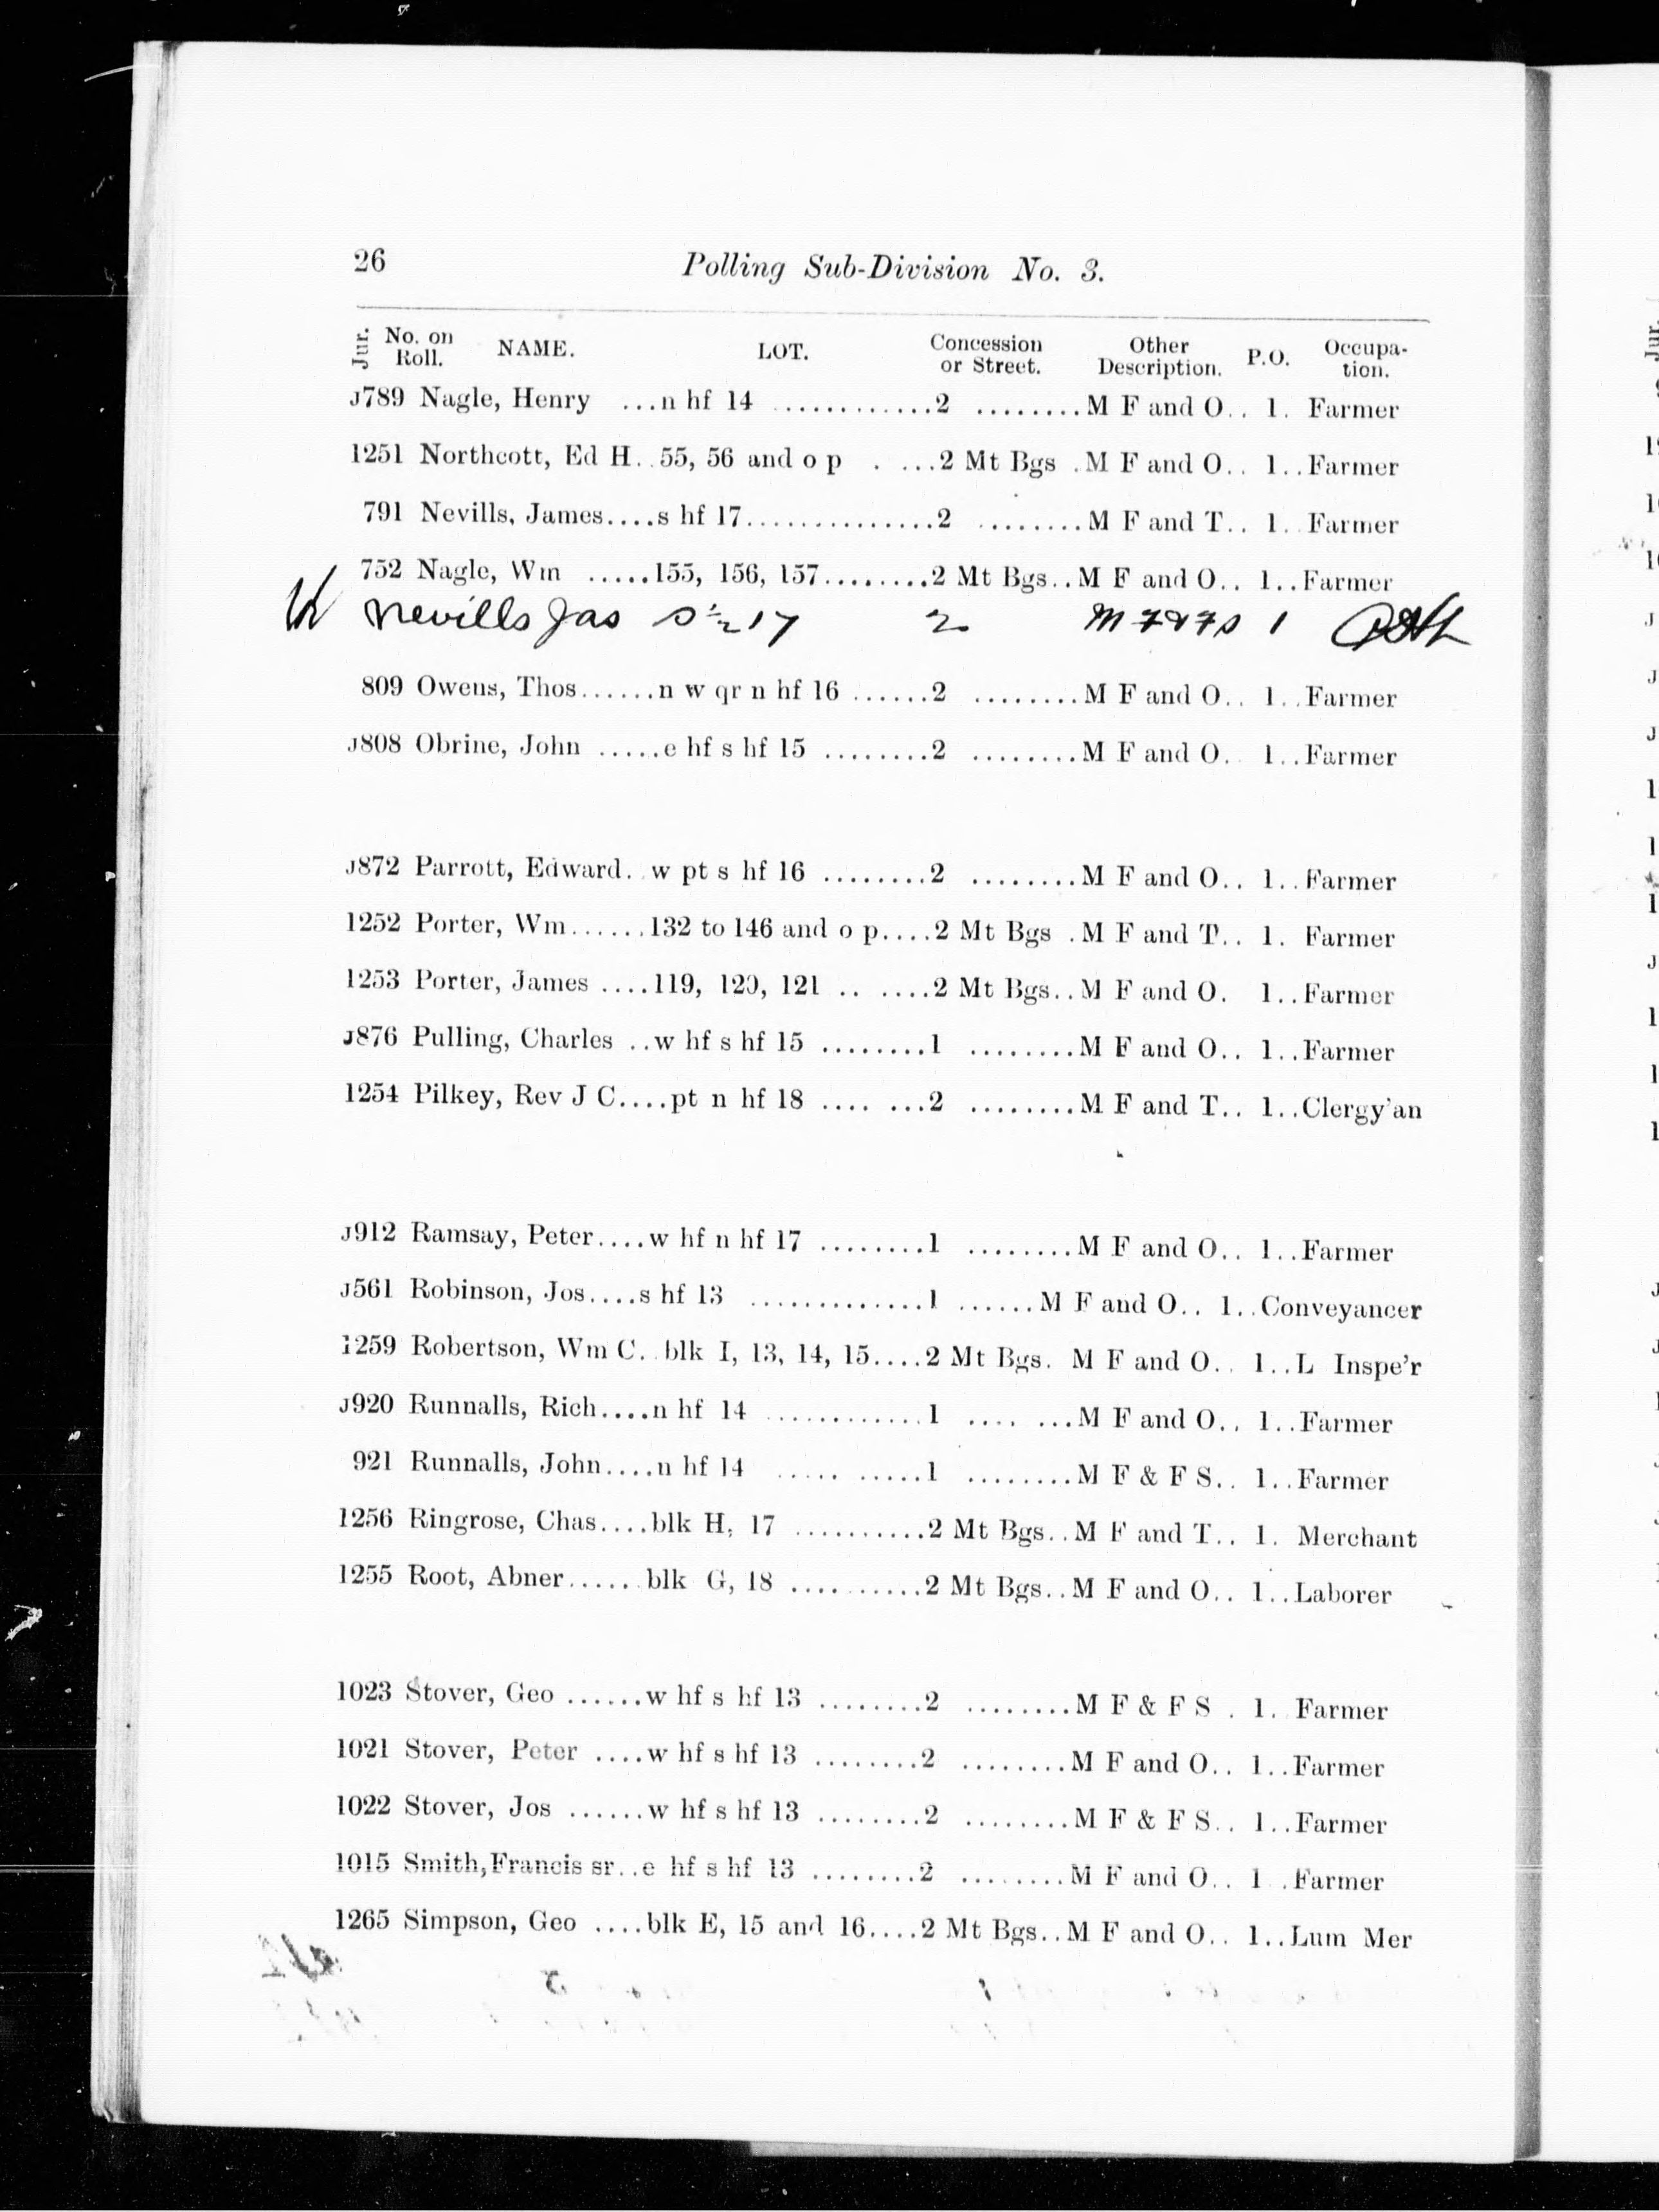 26 Polling Sub-Division No. 3.
Jur. No. on Roll. NAME. LOT. Concession or Street. Other Description. P.O. Occupa-tion.
J789 Nagle, Henry ...n hf 14 ............2 ........M F and O.. 1. Farmer
1251 Northcott, Ed H. .55, 56 and o p . ...2 Mt Bgs .M F and O.. 1..Farmer
791 Nevills, James....s hf 17..............2 ........M F and T.. 1. .Farmer
752 Nagle, Wm .....155, 156, 157........2 Mt Bgs..M F and O.. 1..Farmer
Nevills Jas S ½ 17 2 M F & F S 1
809 Owens, Thos......n w qr n hf 16 ......2 ........M F and O.. 1..Farmer
J808 Obrine, John .....e hf s hf 15 ........2 ........M F and O. 1..Farmer
J872 Parrott, Edward. .w pt s hf 16 ........2 ........M F and O.. 1..Farmer
1252 Porter, Wm......132 to 146 and o p....2 Mt Bgs .M F and T.. 1. Farmer
1253 Porter, James ....119, 120, 121 .. ....2 Mt Bgs..M F and O. 1..Farmer
J876 Pulling, Charles ..w hf s hf 15 ........1 ........M F and O.. 1..Farmer
1254 Pilkey, Rev J C....pt n hf 18 .... ...2 ........M F and T.. 1..Clergy'an
J912 Ramsay, Peter....w hf n hf 17 ........1 ........M F and O.. 1..Farmer
J561 Robinson, Jos....s hf 13 .............1 ......M F and O.. 1..Conveyancer
1259 Robertson, Wm C. .blk I, 13, 14, 15....2 Mt Bgs. M F and O.. 1..L Inspe'r
J920 Runnalls, Rich....n hf 14 ............1 .... ...M F and O.. 1..Farmer
921 Runnalls, John....n hf 14 ..... .....1 ........M F & F S.. 1..Farmer
1256 Ringrose, Chas....blk H, 17 ..........2 Mt Bgs..M F and T.. 1. Merchant
1255 Root, Abner......blk G, 18 ..........2 Mt Bgs..M F and O.. 1..Laborer
1023 Stover, Geo ......w hf s hf 13 ........2 ........M F & F S . 1. Farmer
1021 Stover, Peter ....w hf s hf 13 ........2 ........M F and O.. 1..Farmer
1022 Stover, Jos ......w hf s hf 13 ........2 ........M F & F S.. 1..Farmer
1015 Smith,Francis sr..e hf s hf 13 ........2 ........M F and O.. 1 .Farmer
1265 Simpson, Geo ....blk E, 15 and 16....2 Mt Bgs..M F and O.. 1..Lum Mer